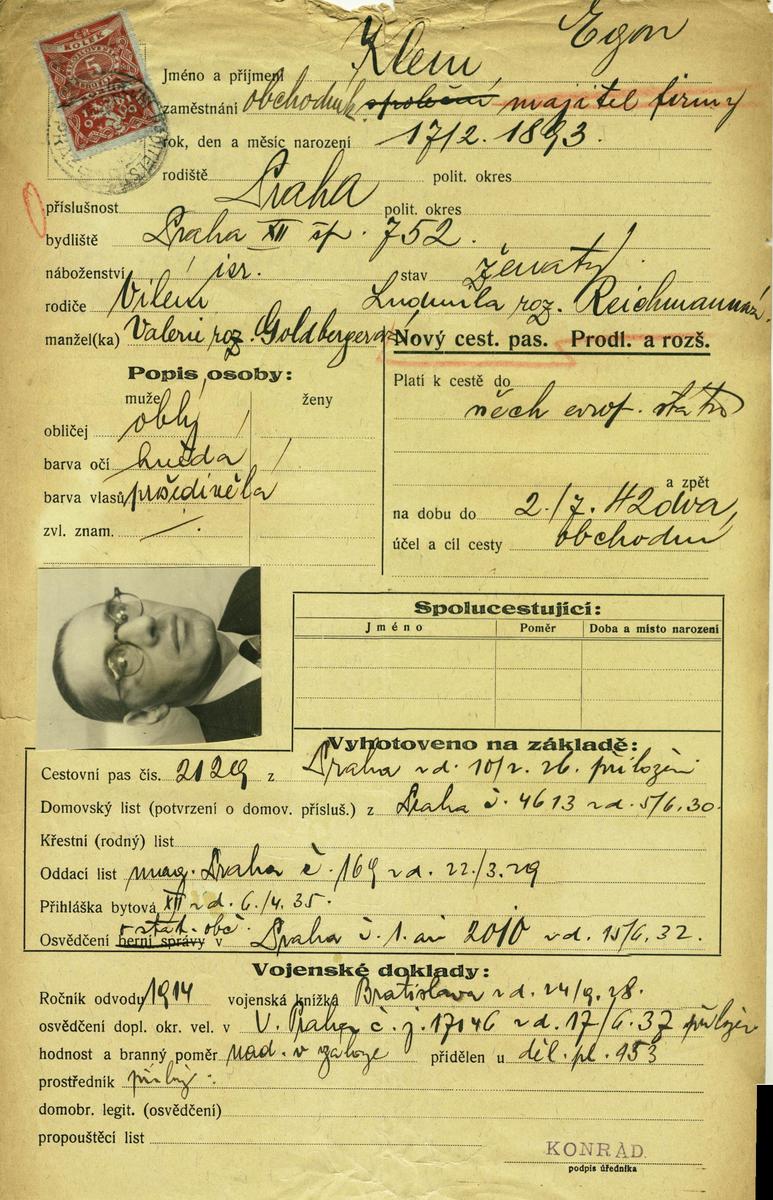 Č.R.
KOLEK
5
Jméno a příjmení Klein Egon
zaměstnání obchodník společní majitel firmy
rok, den a měsíc narození 17/2. 1893.
rodiště Praha polit. okres
příslušnost polit. okres
bydliště Praha XII čp. 752.
náboženství isr. stav ženatý
rodiče Vilém Ludmila roz. Reichmannová
manžel(ka) Valerie roz. Goldbergerová
Nový cest. pas. Prodl. a rozš.
Popis osoby:
muže ženy
obličej oblý
barva očí hnědá
barva vlasů prošedivělá
zvl. znam. —.
Platí k cestě do
všech evrop. států
a zpět
na dobu do 2./7. 42 dva
účel a cíl cesty obchodní
Spolucestující:
Jméno Poměr Doba a místo narození
Vyhotoveno na základě:
Cestovní pas čís. 2129 z Praha z d. 10/2. 26. přiložen
Domovský list (potvrzení o domov. přísluš.) z Praha č. 4613 z d. 5/6. 30.
Křestní (rodný) list
Oddací list mag. Praha č. 169 z d. 22./3. 29
Přihláška bytová XII z d. 6./4. 35.
stát. obč.
Osvědčení herní správy v Praha č. 2010 z d. 15/6. 32.
Vojenské doklady:
Ročník odvodu 1914 vojenská knížka Bratislava z d. 24/9. 28.
osvědčení dopl. okr. vel. v V. Praha č. j. 17046 z d. 17/6. 37 přiložen
hodnost a branný poměr v záloze přidělen u děl. pl. 153
prostředník
domobr. legit. (osvědčení)
propouštěcí list
KONRÁD.
podpis úředníka